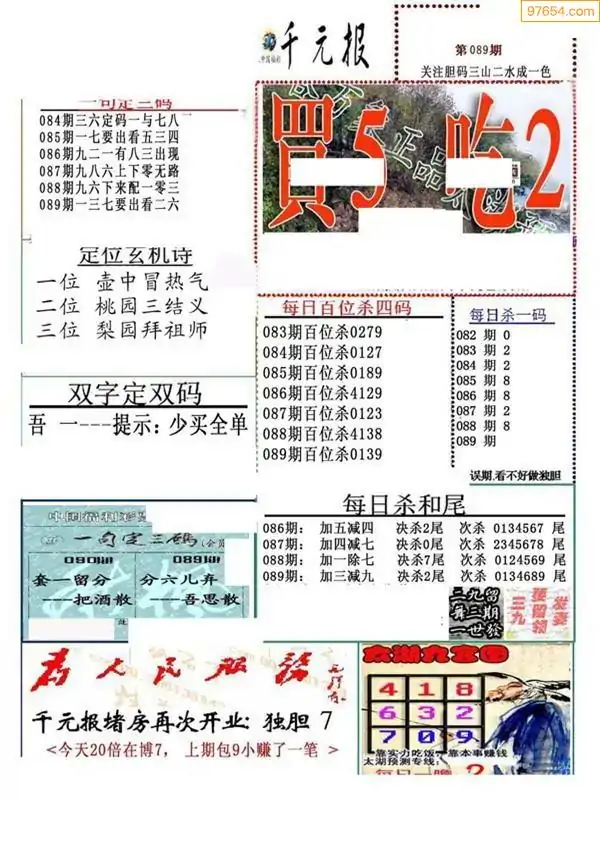 97654.com
千元报
第089期
关注胆码三山二水成一色
一句定三码
084期三六定码一与七八
085期一七要出看五三四
086期九二一有八三出现
087期九八六上下零无路
088期九六下来配一零三
089期一三七要出看二六
買5 吃2
定位玄机诗
一位 壶中冒热气
二位 桃园三结义
三位 梨园拜祖师
每日百位杀四码
083期百位杀0279
084期百位杀0127
085期百位杀0189
086期百位杀4129
087期百位杀0123
088期百位杀4138
089期百位杀0139
每日杀一码
082 期 0
083 期 2
084 期 2
085 期 8
086 期 8
087 期 2
088 期 8
089 期
误期,看不好做独胆
双字定双码
吾 一---提示: 少买全单
每日杀和尾
086期: 加五减四 决杀2尾 次杀 0134567 尾
087期: 加四减七 决杀0尾 次杀 2345678 尾
088期: 加一除七 决杀7尾 次杀 0124569 尾
089期: 加三减九 决杀2尾 次杀 0134689 尾
中国福利彩
一句定三码
090期 089期
套一留分 分六儿弃
---把酒散 ---吾思散
为人民服务
千元报堵房再次开业: 独胆 7
<今天20倍在博7, 上期包9小赚了一笔 >
太湖九宫图
4 1 8
6 3 2
7 0 9
靠实力吃饭,靠本事赚钱
太湖预测专线: